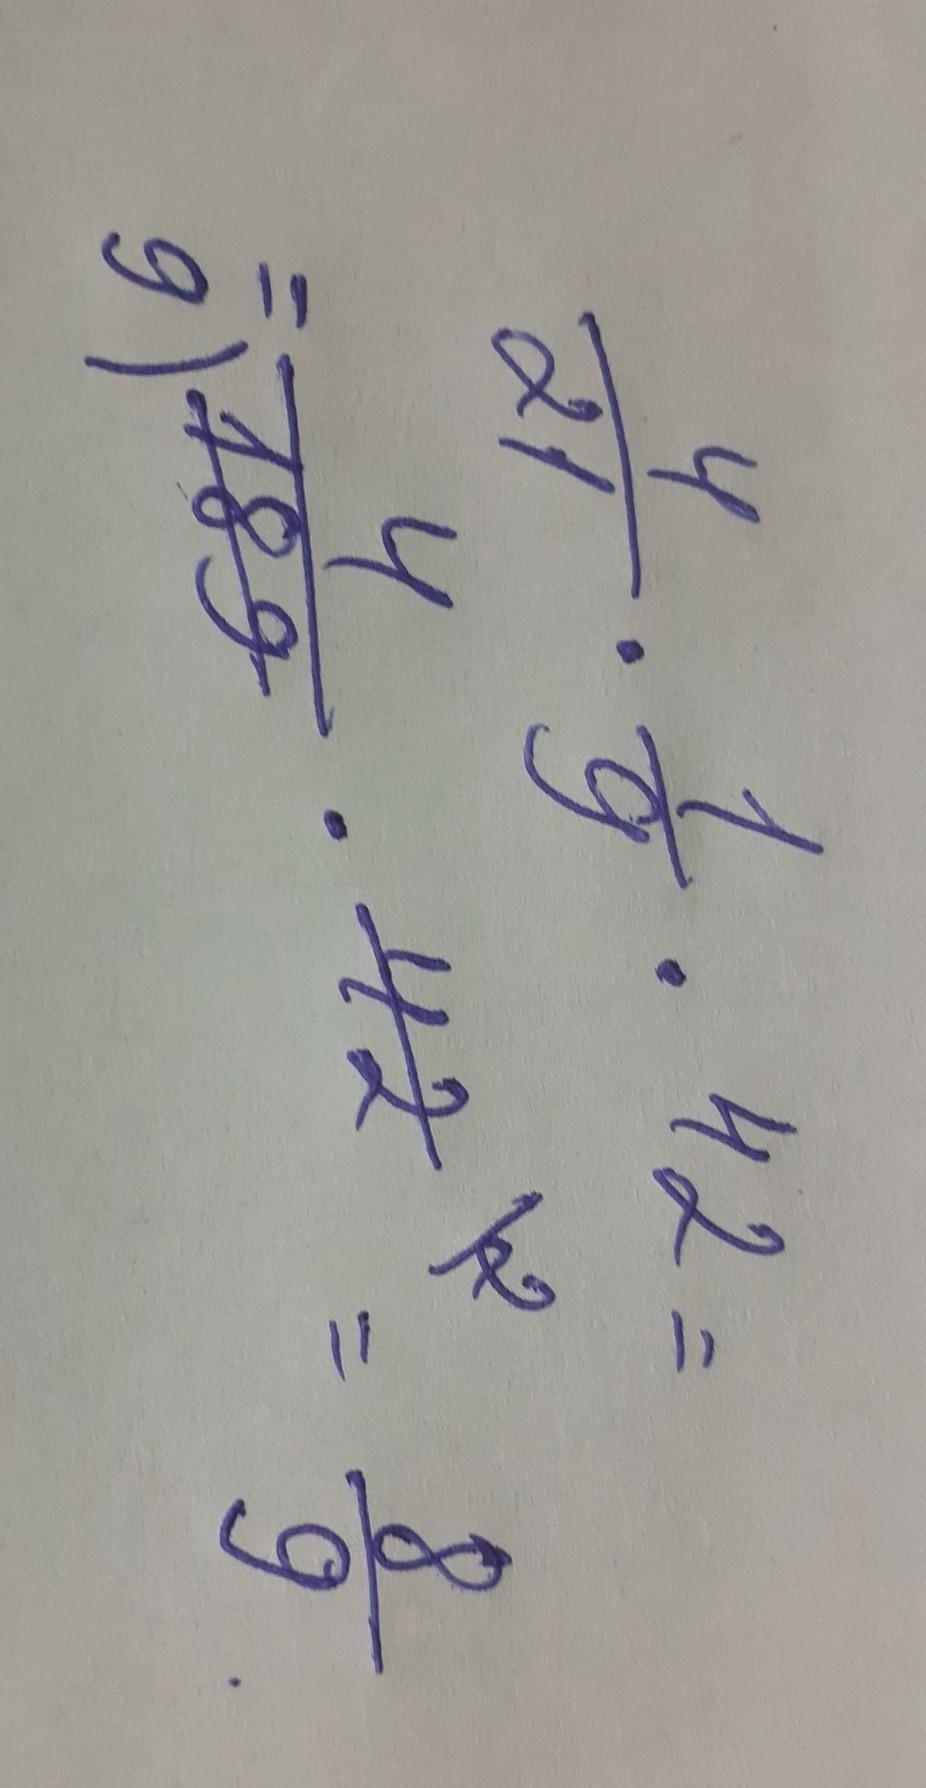 4/21 · 1/9 · 42 =
= 4/189 9) · 42 2 = 8/9.